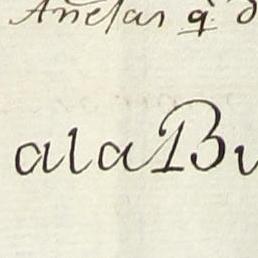 Añelas q̱̃ d
ala Bu